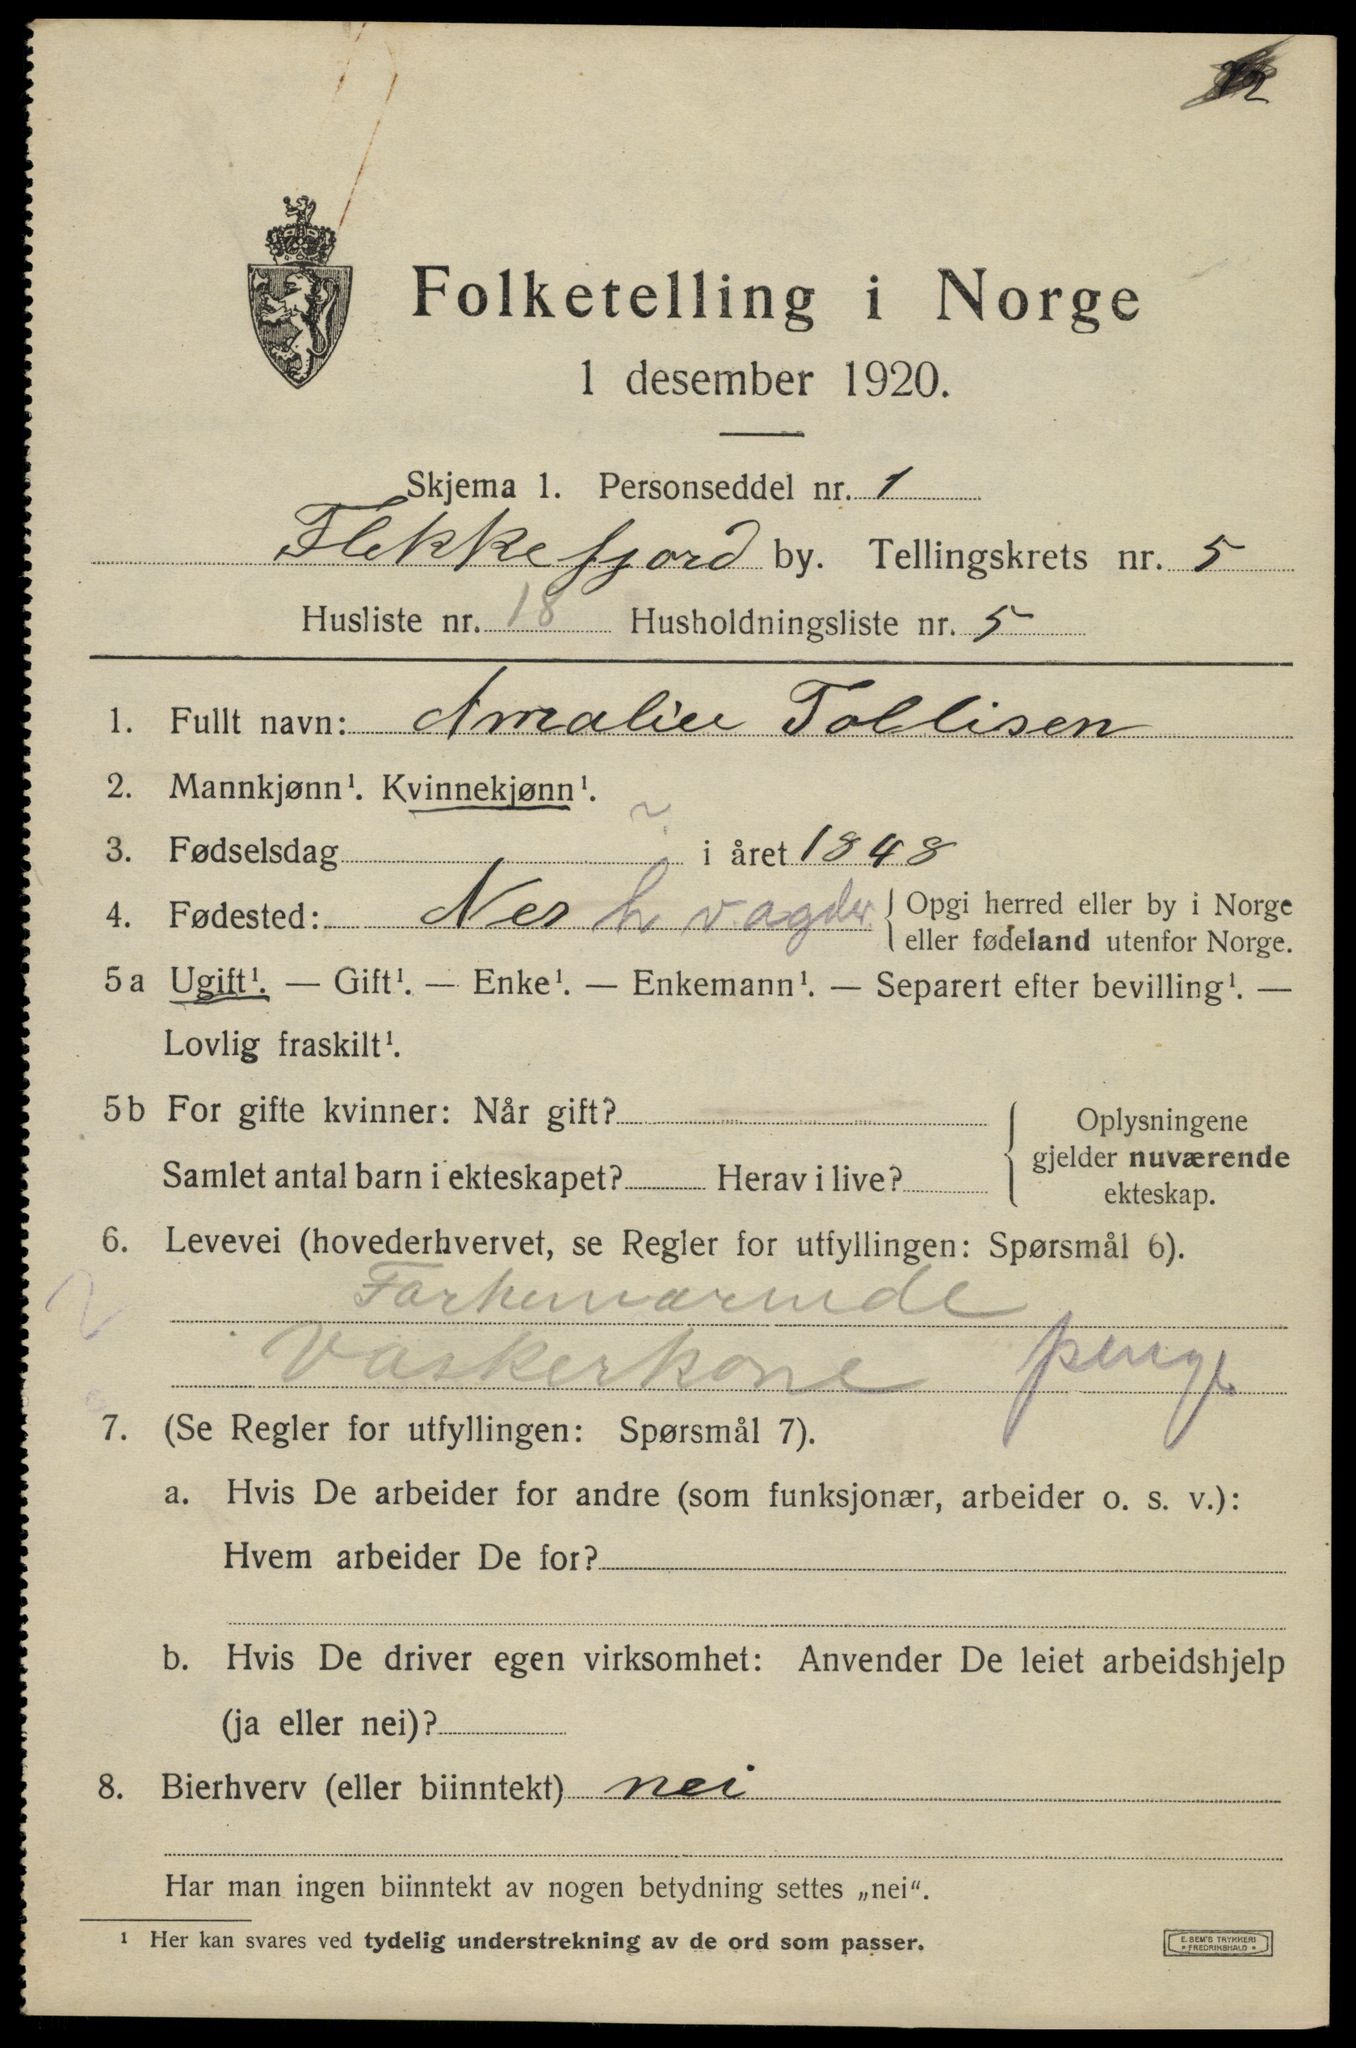 Folketelling i Norge
1 desember 1920.
Skjema 1. Personseddel nr. 1
Flekkefjord by. Tellingskrets nr. 5
Husliste nr. 18 Husholdningsliste nr. 5
1. Fullt navn: Amalie Tollisen
2. Mannkjønn¹. Kvinnekjønn¹.
3. Fødselsdag ? i året 1848
4. Fødested: Nes h v.agder { Opgi herred eller by i Norge
eller fødeland utenfor Norge.
5a Ugift¹. — Gift¹. — Enke¹. — Enkemann¹. — Separert efter bevilling¹. —
Lovlig fraskilt¹.
5b For gifte kvinner: Når gift?
Samlet antal barn i ekteskapet? Herav i live?
{ Oplysningene
gjelder nuværende
ekteskap.
6. Levevei (hovederhvervet, se Regler for utfyllingen: Spørsmål 6).
Forhenværende
Vaskerkone
7. (Se Regler for utfyllingen: Spørsmål 7).
a. Hvis De arbeider for andre (som funksjonær, arbeider o. s. v.):
Hvem arbeider De for?
b. Hvis De driver egen virksomhet: Anvender De leiet arbeidshjelp
(ja eller nei)?
8. Bierhverv (eller biinntekt) nei
Har man ingen biinntekt av nogen betydning settes „nei“.
¹ Her kan svares ved tydelig understrekning av de ord som passer.
E. SEM'S TRYKKERI
* FREDRIKSHALD *